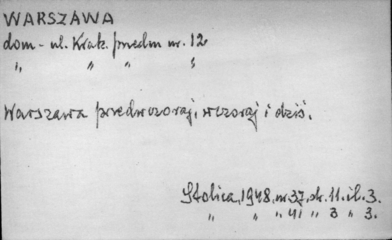 WARSZAWA
dom - ul. Krak. przedm nr. 12
" " " "
Warszawa przedwczoraj, wczoraj i dziś.
Stolica, 1948, nr 37, str. 11. il. 3.
" " " 41 " 3 " 3.